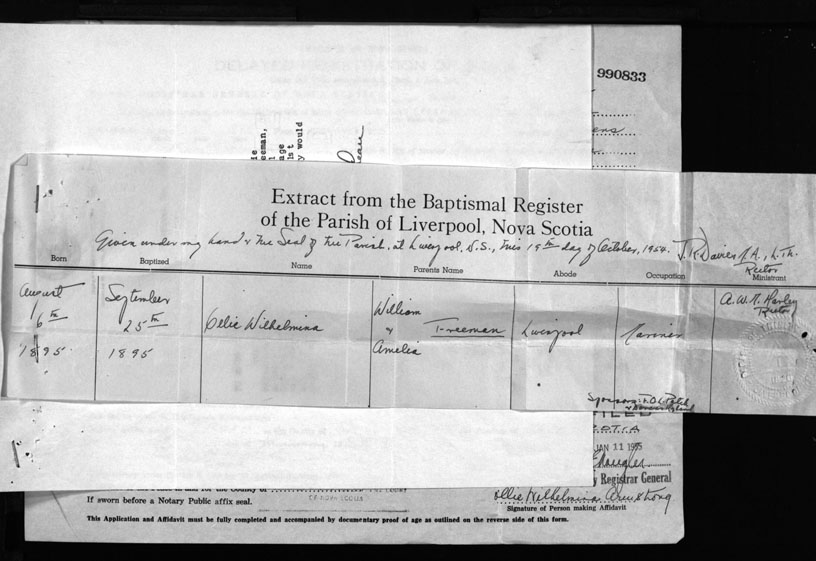 990833
eeman,
age
would
Extract from the Baptismal Register
of the Parish of Liverpool, Nova Scotia
Given under my hand & the Seal of the Parish, at Liverpool, N.S., this 19th day of October, 1954. J. R. Davies M.A., L.Th.
Rector
Born Baptized Name Parents Name Abode Occupation Ministrant
August September William A.W.M. Harley
Rector
6th 25th Ollie Wilhelmina & Freeman Liverpool Mariner
1895 1895 Amelia
FILED
JAN 11 1955
Registrar General
If sworn before a Notary Public affix seal.
Ollie Wilhelmina Armstrong
Signature of Person making Affidavit
This Application and Affidavit must be fully completed and accompanied by documentary proof of age as outlined on the reverse side of this form.